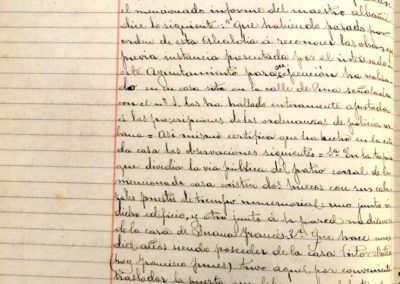 el mencionado informe del maestro albañil
dice lo siguiente: 1ª Que habiendo pasado por
orden de esta Alcaldia á reconocer las obras que
previa instancia presentada por el interesado
este Ayuntamiento para su ejecucion ha realiza
do en su casa sita en la calle de señalada
con el nº 1, las ha hallado enteramente ajustada
á las prescripciones de las ordenanzas de policia ur
bana = Asi mismo certifica que ha hecho en la ci
da casa las observaciones siguientes = 2ª En la tapia
que dividia la via pública del patio corral de la
mencionada casa existen dos huecos con sus
puestos de tiempo inmemorial; uno junto á
dicho edificio, y otro junto á la pared medianera
de la casa de Francés 3ª Que hace unos
diez años siendo poseedor de la casa
(hoy Francisco ) tuvo aquel por conveniente
trasladar la puerta